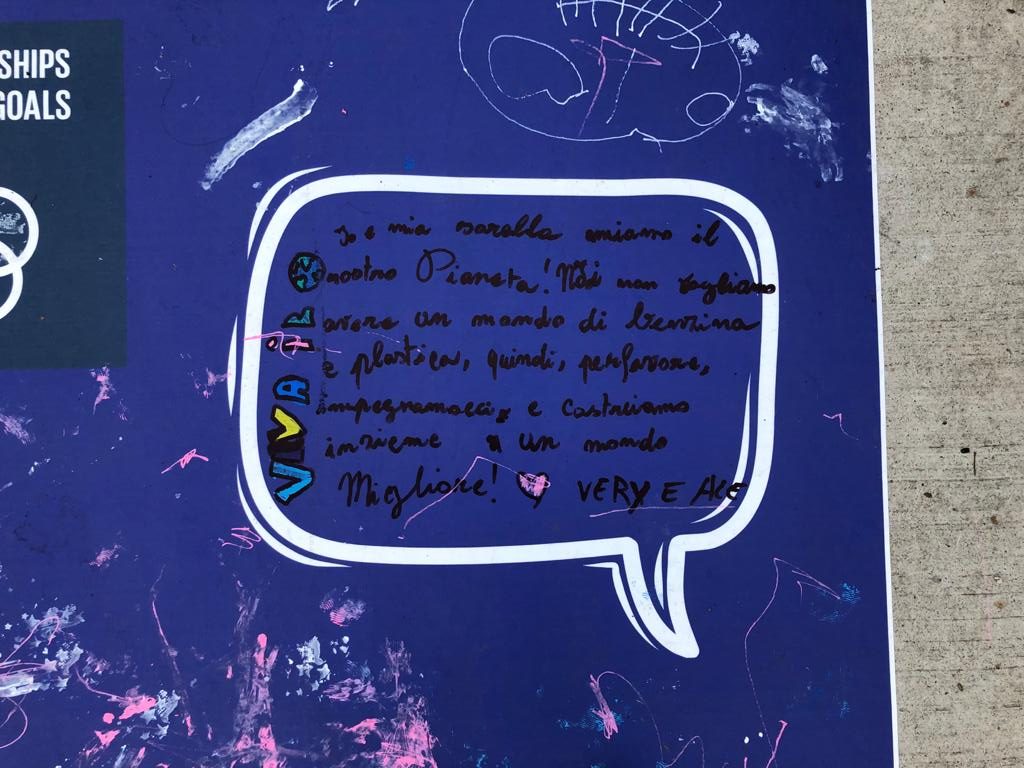 SHIPS
GOALS
Io e mia sorella amiamo il
nostro Pianeta! Noi non vogliamo
avere un mondo di benzina
e plastica, quindi, perfavore,
impegnamocci, e costruiamo
insieme un mondo
Migliore! VERY E ALE
VIVA IL